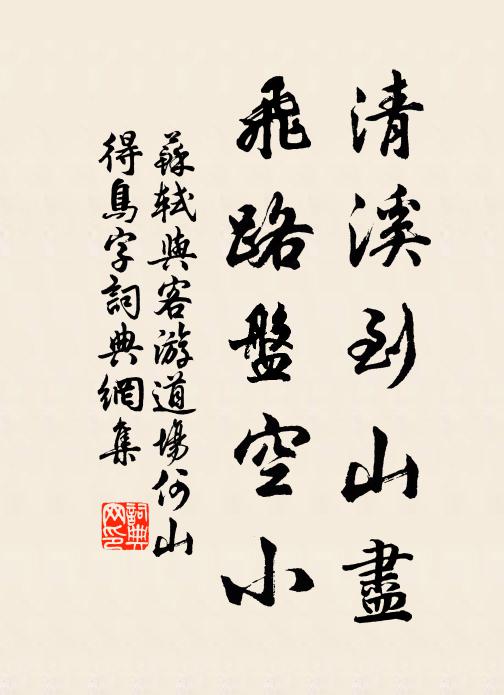 清溪到山盡
飛路盤空小
蘇軾與客游道場何山
得鳥字詞典網集
詞典網印